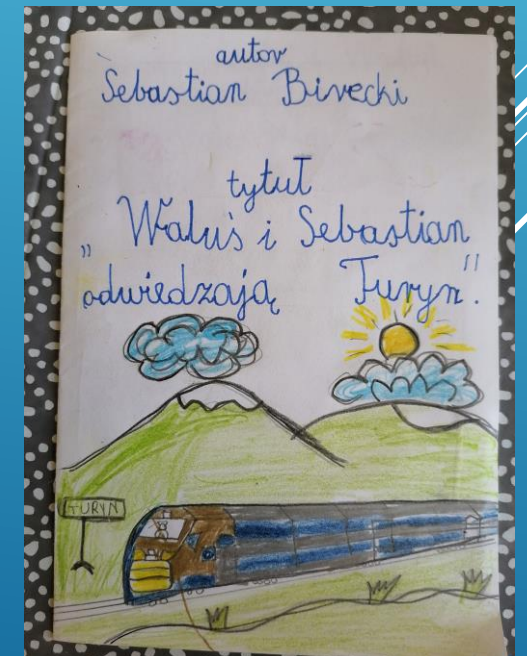 autor
Sebastian Birecki
tytuł
„Waluś i Sebastian
odwiedzają Turyn".
TURYN